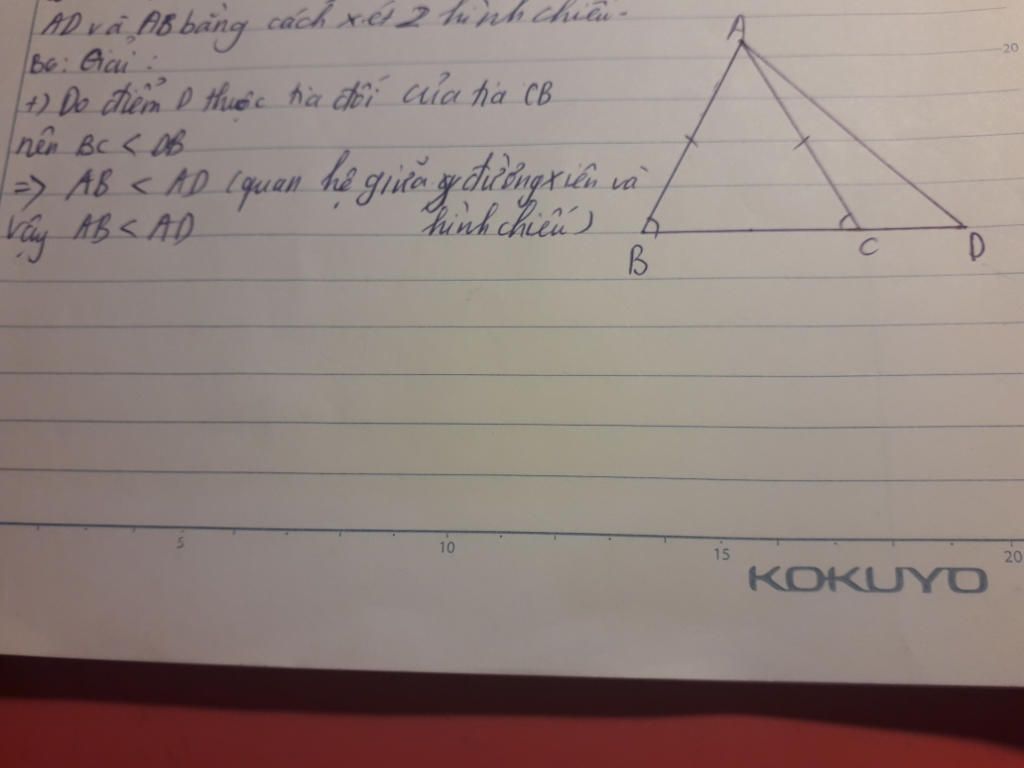 AD và AB bằng cách xét 2 hình chiếu.
Bg: Giải:
+) Do điểm D thuộc tia đối của tia CB
nên BC < DB
=> AB < AD (quan hệ giữa đường xiên và
hình chiếu)
Vậy AB < AD
A
B
C
D
20
5
10
15
20
KOKUYO